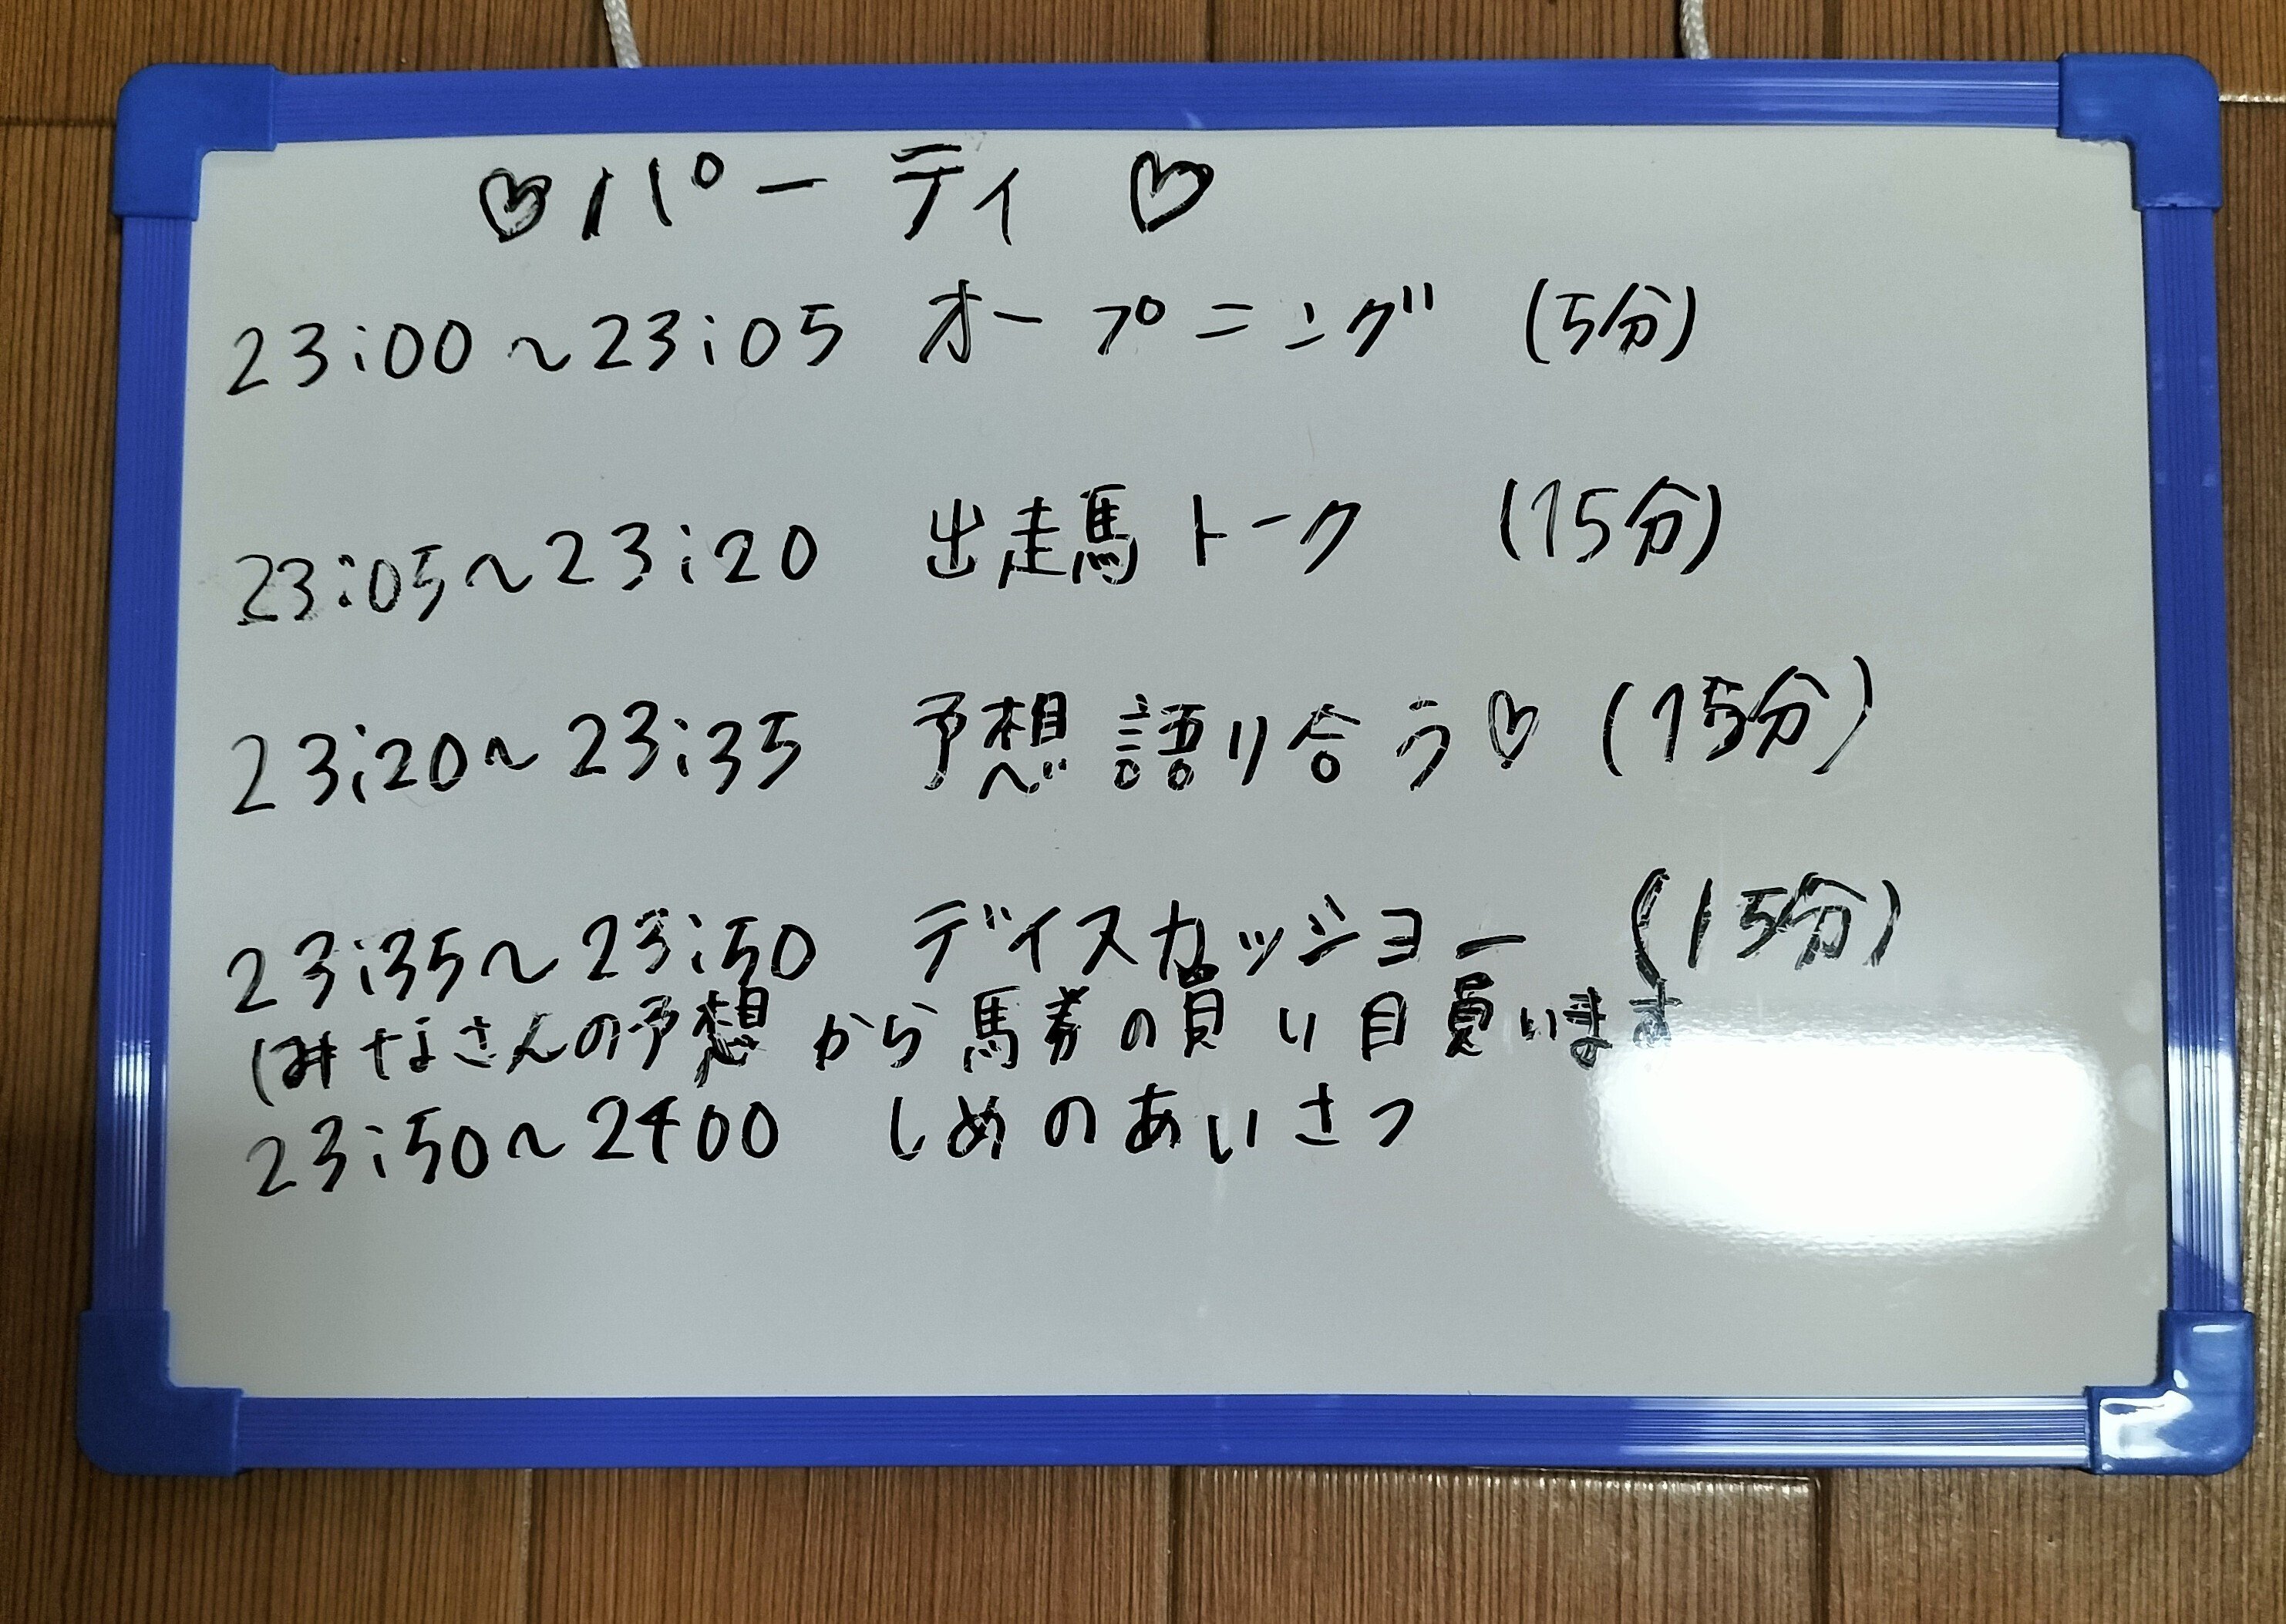 ♡パーティ♡
23:00～23:05 オープニング (5分)
23:05～23:20 出走馬トーク (15分)
23:20～23:35 予想語り合う♡ (15分)
23:35～23:50 ディスカッジョー (15分)
(みなさんの予想から馬券の買い目買います
23:50～2400 しめのあいさつ